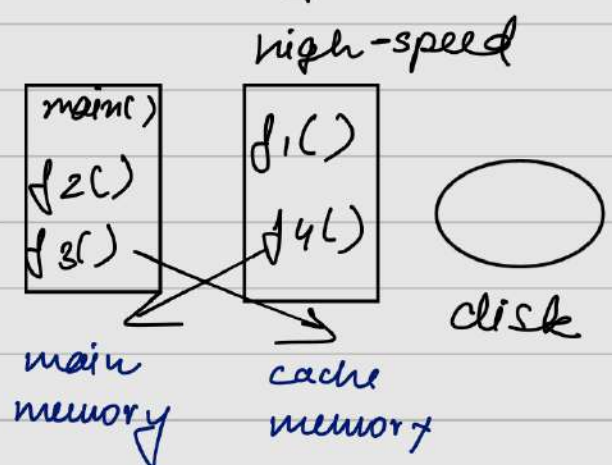 high-speed
main()
f2()
f3()
f1()
f4()
disk
main
memory
cache
memory